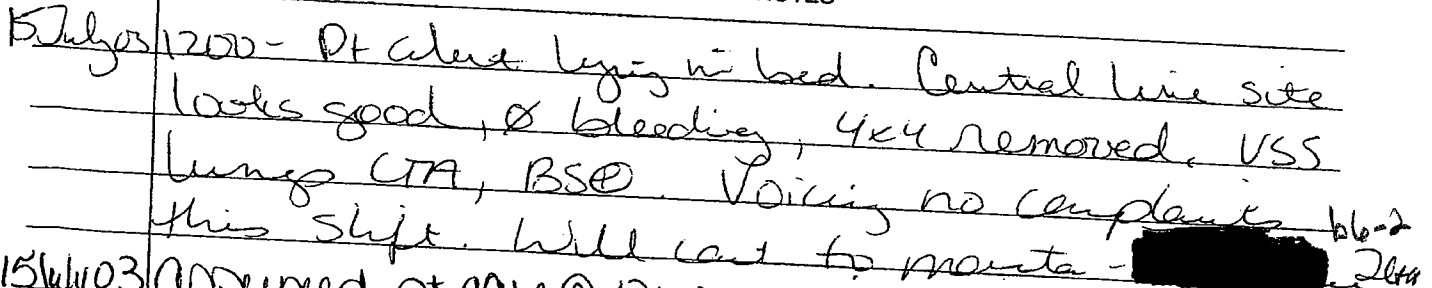 15July03 1200 - Pt alert lying in bed. Central line site
looks good, Ø bleeding, 4x4 removed. VSS
lungs CTA, BS⊕. Voicing no complaints
this shift. Will cont to monitor - b6-2
15July03 assumed pt care @